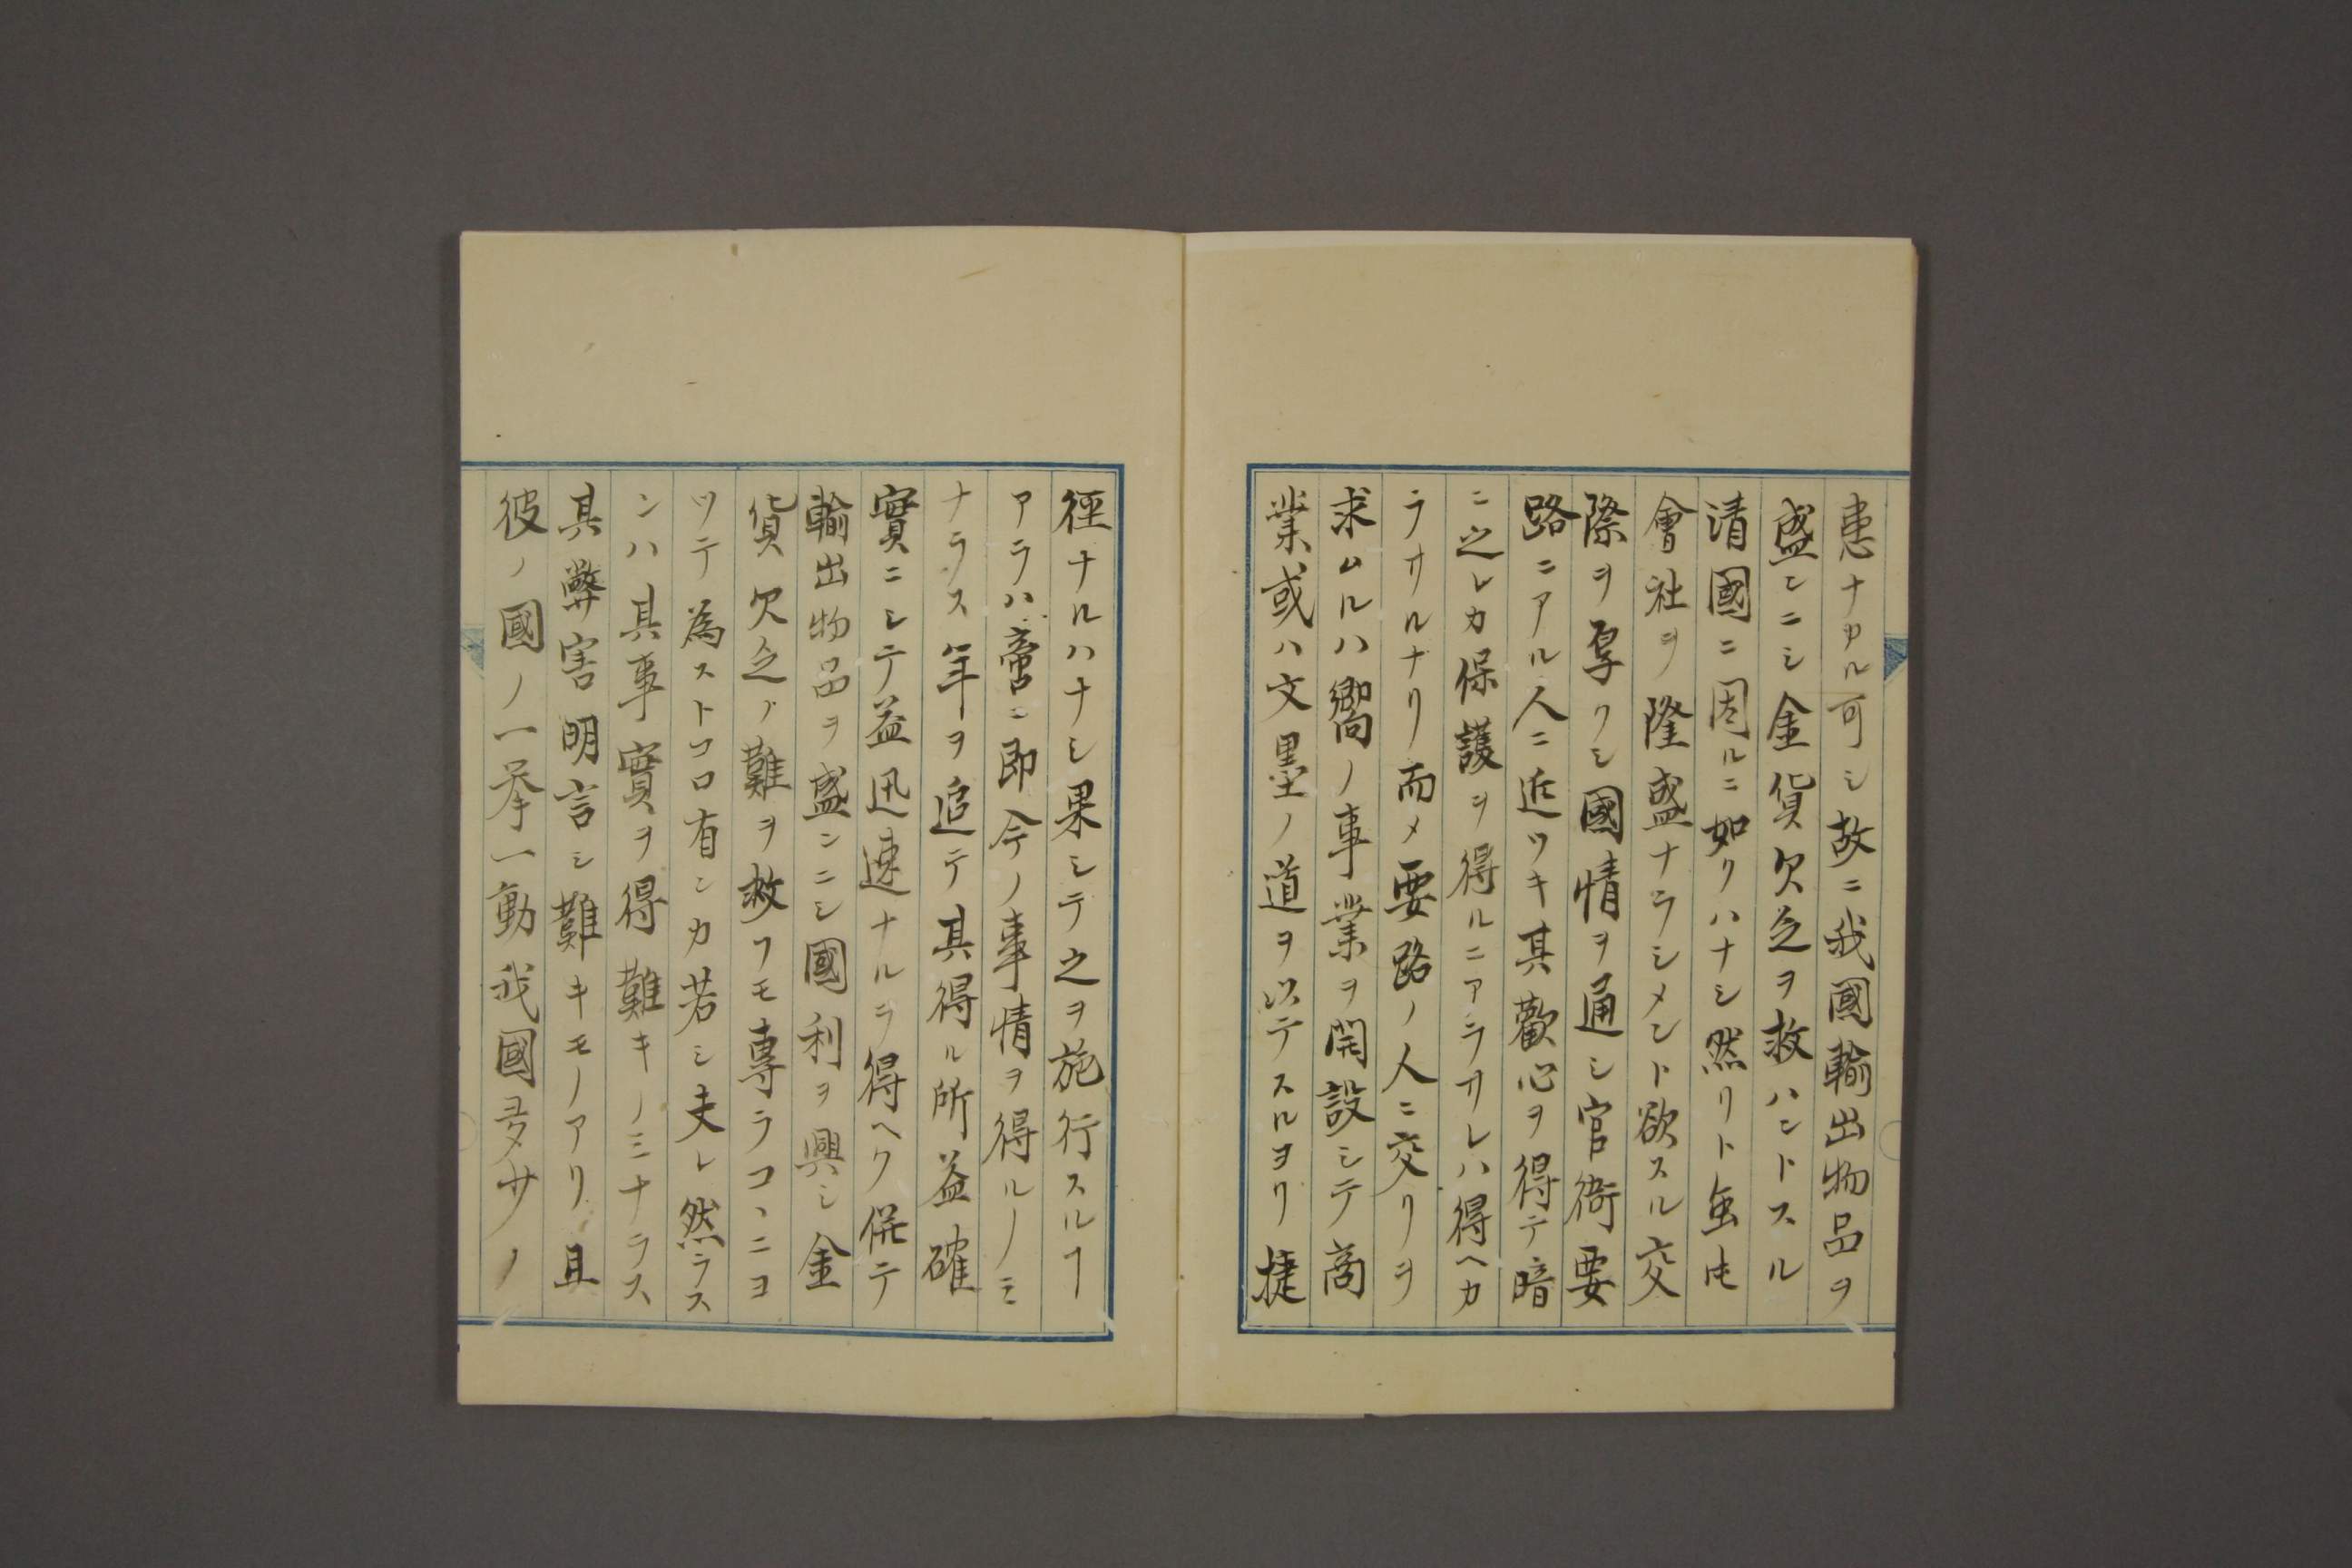 患ナカル可シ故ニ我國輸出物品ヲ
盛ンニシ金貨欠乏ヲ救ハントスル
清國ニ因ルニ如クハナシ然リト虽𪜈
會社ヲ隆盛ナラシメント欲スル交
際ヲ厚クシ國情ヲ通シ官衙要
路ニアル人ニ近ツキ其歡心ヲ得テ暗
ニ之レカ保護ヲ得ルニアラサレハ得ヘカ
ラサルナリ而メ要路ノ人ニ交リヲ
求ムルハ嚮ノ事業ヲ開設シテ商
業或ハ文墨ノ道ヲ以テスルヨリ捷
徑ナルハナシ果シテ之ヲ施行スルヿ
アラハ啻ニ即今ノ事情ヲ得ルノミ
ナラス年ヲ追テ其得ル所益確
實ニシテ益迅速ナルヲ得ヘク併テ
輸出物品ヲ盛ンニシ國利ヲ興シ金
貨欠乏ノ難ヲ救フモ専ラコヽニヨ
ツテ為ストコロ有ンカ若シ夫レ然ラス
ンハ其事實ヲ得難キノミナラス
其弊害明言シ難キモノアリ且
彼ノ國ノ一挙一動我國多少ノ